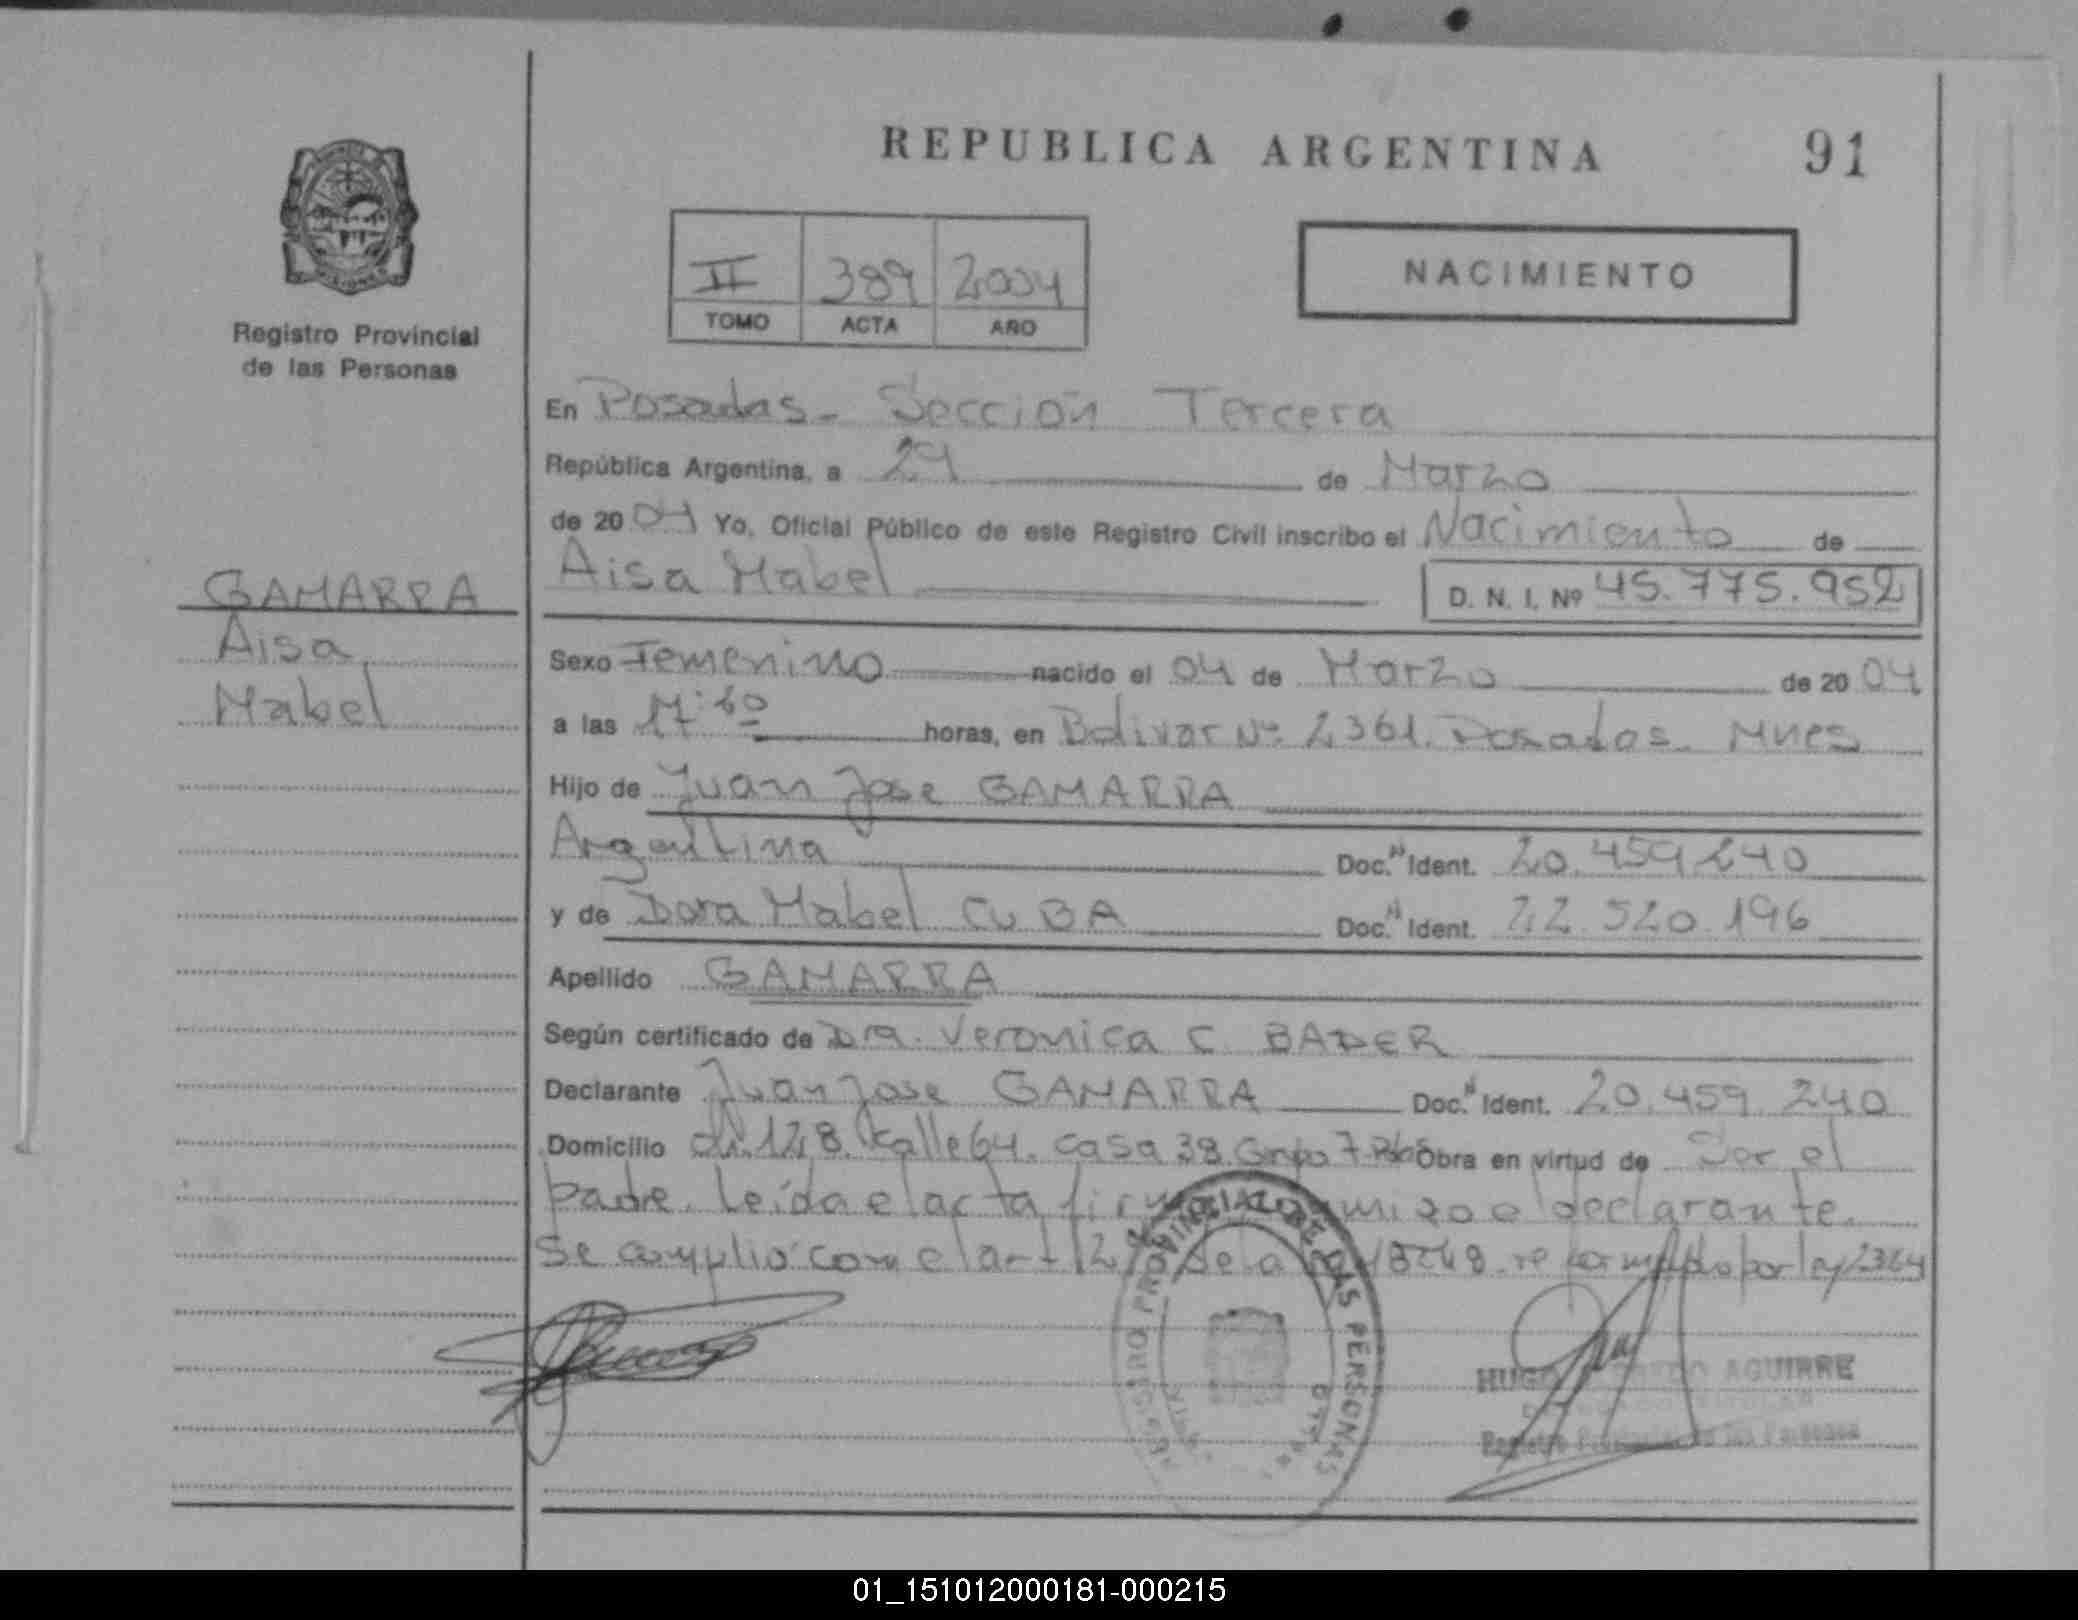 REPUBLICA ARGENTINA 91
Registro Provincial
de las Personas
II 389 2004
TOMO ACTA AÑO
NACIMIENTO
En Posadas - Sección Tercera
República Argentina, a 29 de Marzo
de 2004 Yo, Oficial Público de este Registro Civil inscribo el Nacimiento de
GAMARRA
Aisa
Mabel
Aisa Mabel D. N. I. Nº 45.775.952
Sexo Femenino nacido el 04 de Marzo de 2004
a las horas, en Bolivar Nº 2361. Posadas. Mnes
Hijo de Juan Jose GAMARRA
Argentina Doc.N Ident. 20.459.240
y de Dora Mabel CUBA Doc.N Ident. 22.520.196
Apellido GAMARRA
Según certificado de Dra. Veronica C. BADER
Declarante Juan Jose GAMARRA Doc.N Ident. 20.459.240
Domicilio Ch. 128. Calle 64. Casa 38. Grupo 7 Obra en virtud de Ser el
padre. Leída el acta declarante.
Se cumplió con el art de la 18248. reformado por ley
REGISTRO PROVINCIAL DE LAS PERSONAS
HUGO AGUIRRE
Registro Provincial de las Personas
01_151012000181-000215